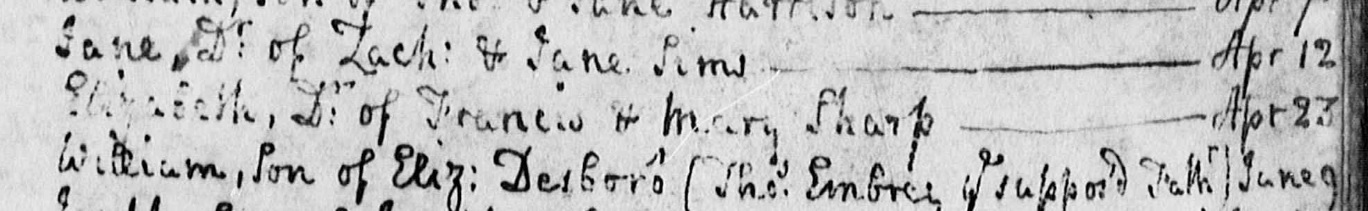 William, Son of Tho: & Jane Harrison Apr 7
Jane, Dr. of Zach: & Jane Sims Apr 12
Elizabeth, Dr. of Francis & Mary Sharp Apr 23
William, Son of Eliz: Desboro' (Tho: Embrey ye suppos'd Fathr) June 9